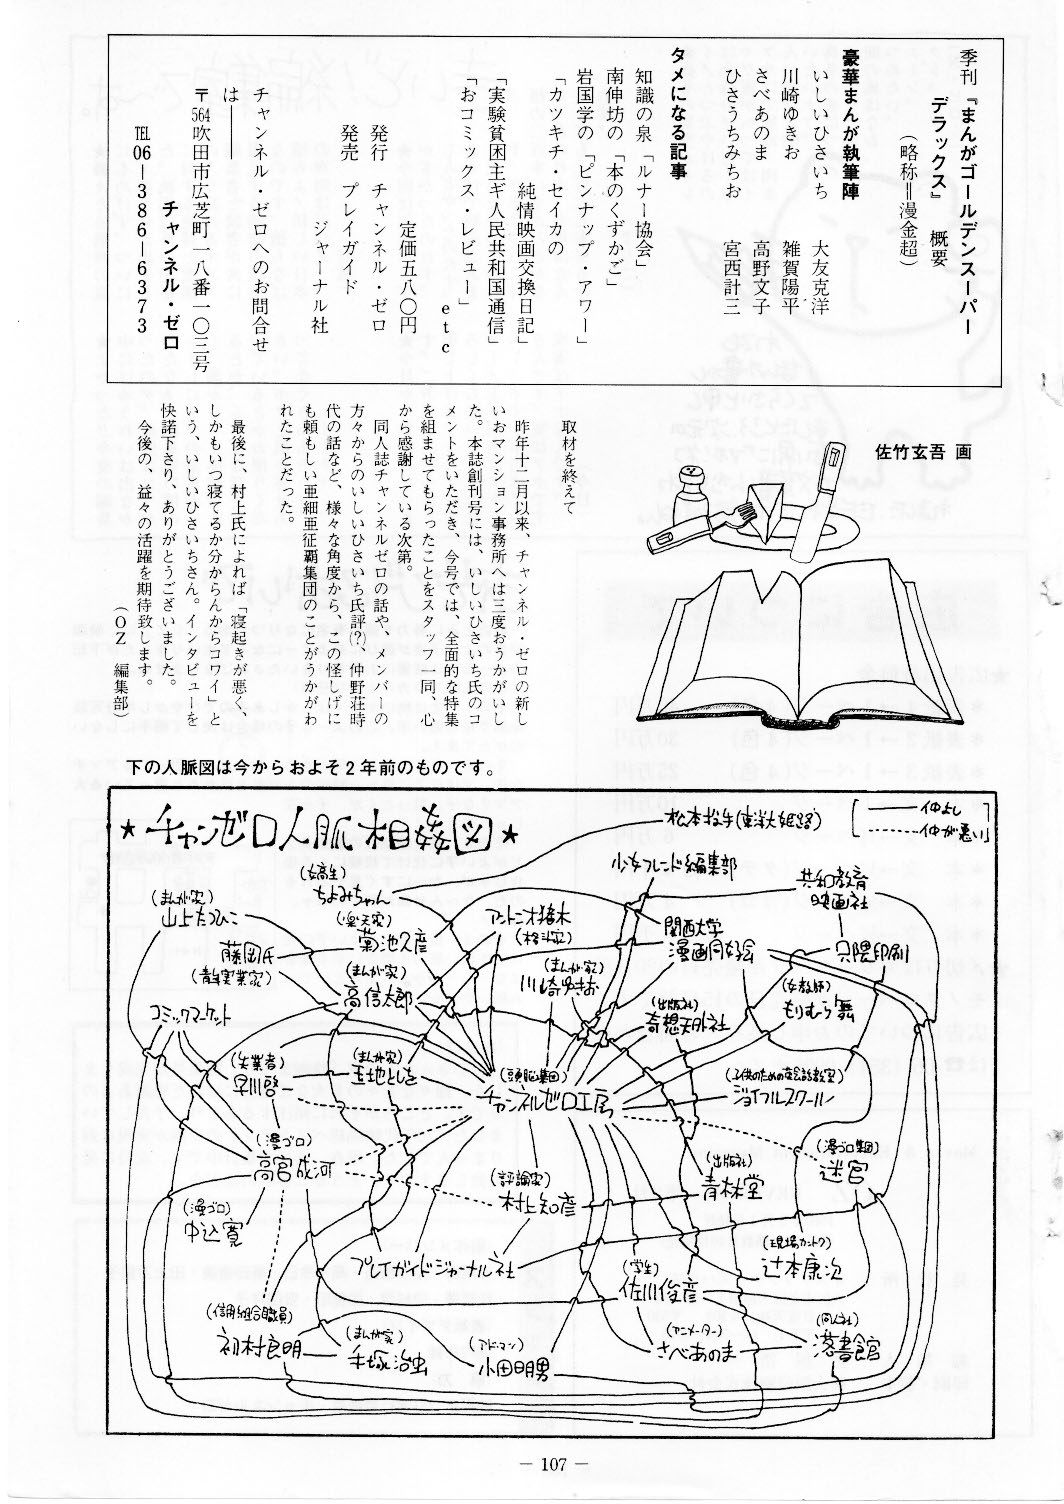 季刊『まんがゴールデンスーパー
デラックス』　概要
（略称＝漫金超）
豪華まんが執筆陣
いしいひさいち　大友克洋
川崎ゆきお　雑賀陽平
さべあのま　高野文子
ひさうちみちお　宮西計三
タメになる記事
知識の泉「ルナー協会」
南伸坊の「本のくずかご」
岩国学の「ピンナップ・アワー」
「カツキチ・セイカの
純情映画交換日記」
「実験貧困主ギ人民共和国通信」
「おコミックス・レビュー」
etc
定価五八〇円
発行　チャンネル・ゼロ
発売　プレイガイド
ジャーナル社
チャンネル・ゼロへのお問合せ
は――
〒564吹田市広芝町一八番一〇三号
チャンネル・ゼロ
TEL 06―386―6373
佐竹玄吾 画
取材を終えて
昨年十二月以来、チャンネル・ゼロの新し
いおマンション事務所へは三度おうかがいし
た。本誌創刊号には、いしいひさいち氏のコ
メントをいただき、今号では、全面的な特集
を組ませてもらったことをスタッフ一同、心
から感謝している次第。
同人誌チャンネルゼロの話や、メンバーの
方々からのいしいひさいち氏評(?)、仲野荘時
代の話など、様々な角度から、この怪しげに
も頼もしい亜細亜征覇集団のことがうかがわ
れたことだった。
最後に、村上氏によれば「寝起きが悪く、
しかもいつ寝てるか分からんからコワイ」と
いう、いしいひさいちさん。インタビューを
快諾下さり、ありがとうございました。
今後の、益々の活躍を期待致します。
（OZ　編集部）
下の人脈図は今からおよそ2年前のものです。
★チャンゼロ人脈相姦図★
――仲よし
------仲が悪い
松本捨予(東洋大姫路)
少女フレンド編集部
共和教育
映画社
(女高生)
ちよみちゃん
(まんが家)
山上たつひこ
(楽天家)
菊池久彦
アントニオ猪木
(格斗家)
関西大学
漫画同好会
只隈印刷
藤岡氏
(青年実業家)
(まんが家)
高信太郎
(まんが家)
川崎ゆきお
(出版社)
奇想天外社
(女教師)
もりむら舞
コミックマーケット
(失業者)
早川啓一
(まんが家)
玉地としを
(頭脳集団)
チャンネルゼロ工房
(子供のための英会話教室)
ジョイフルスクール
(漫ゴロ)
高宮成河
(評論家)
村上知彦
(出版社)
青林堂
(漫ゴロ集団)
迷宮
(漫ゴロ)
中込寛
プレイガイドジャーナル社
(学生)
佐川俊彦
(現場カントク)
辻本康次
(信用組合職員)
初村良明
(まんが家)
手塚治虫
(アドマン)
小田明男
(アニメーター)
さべあのま
(同人社)
落書館
― 107 ―